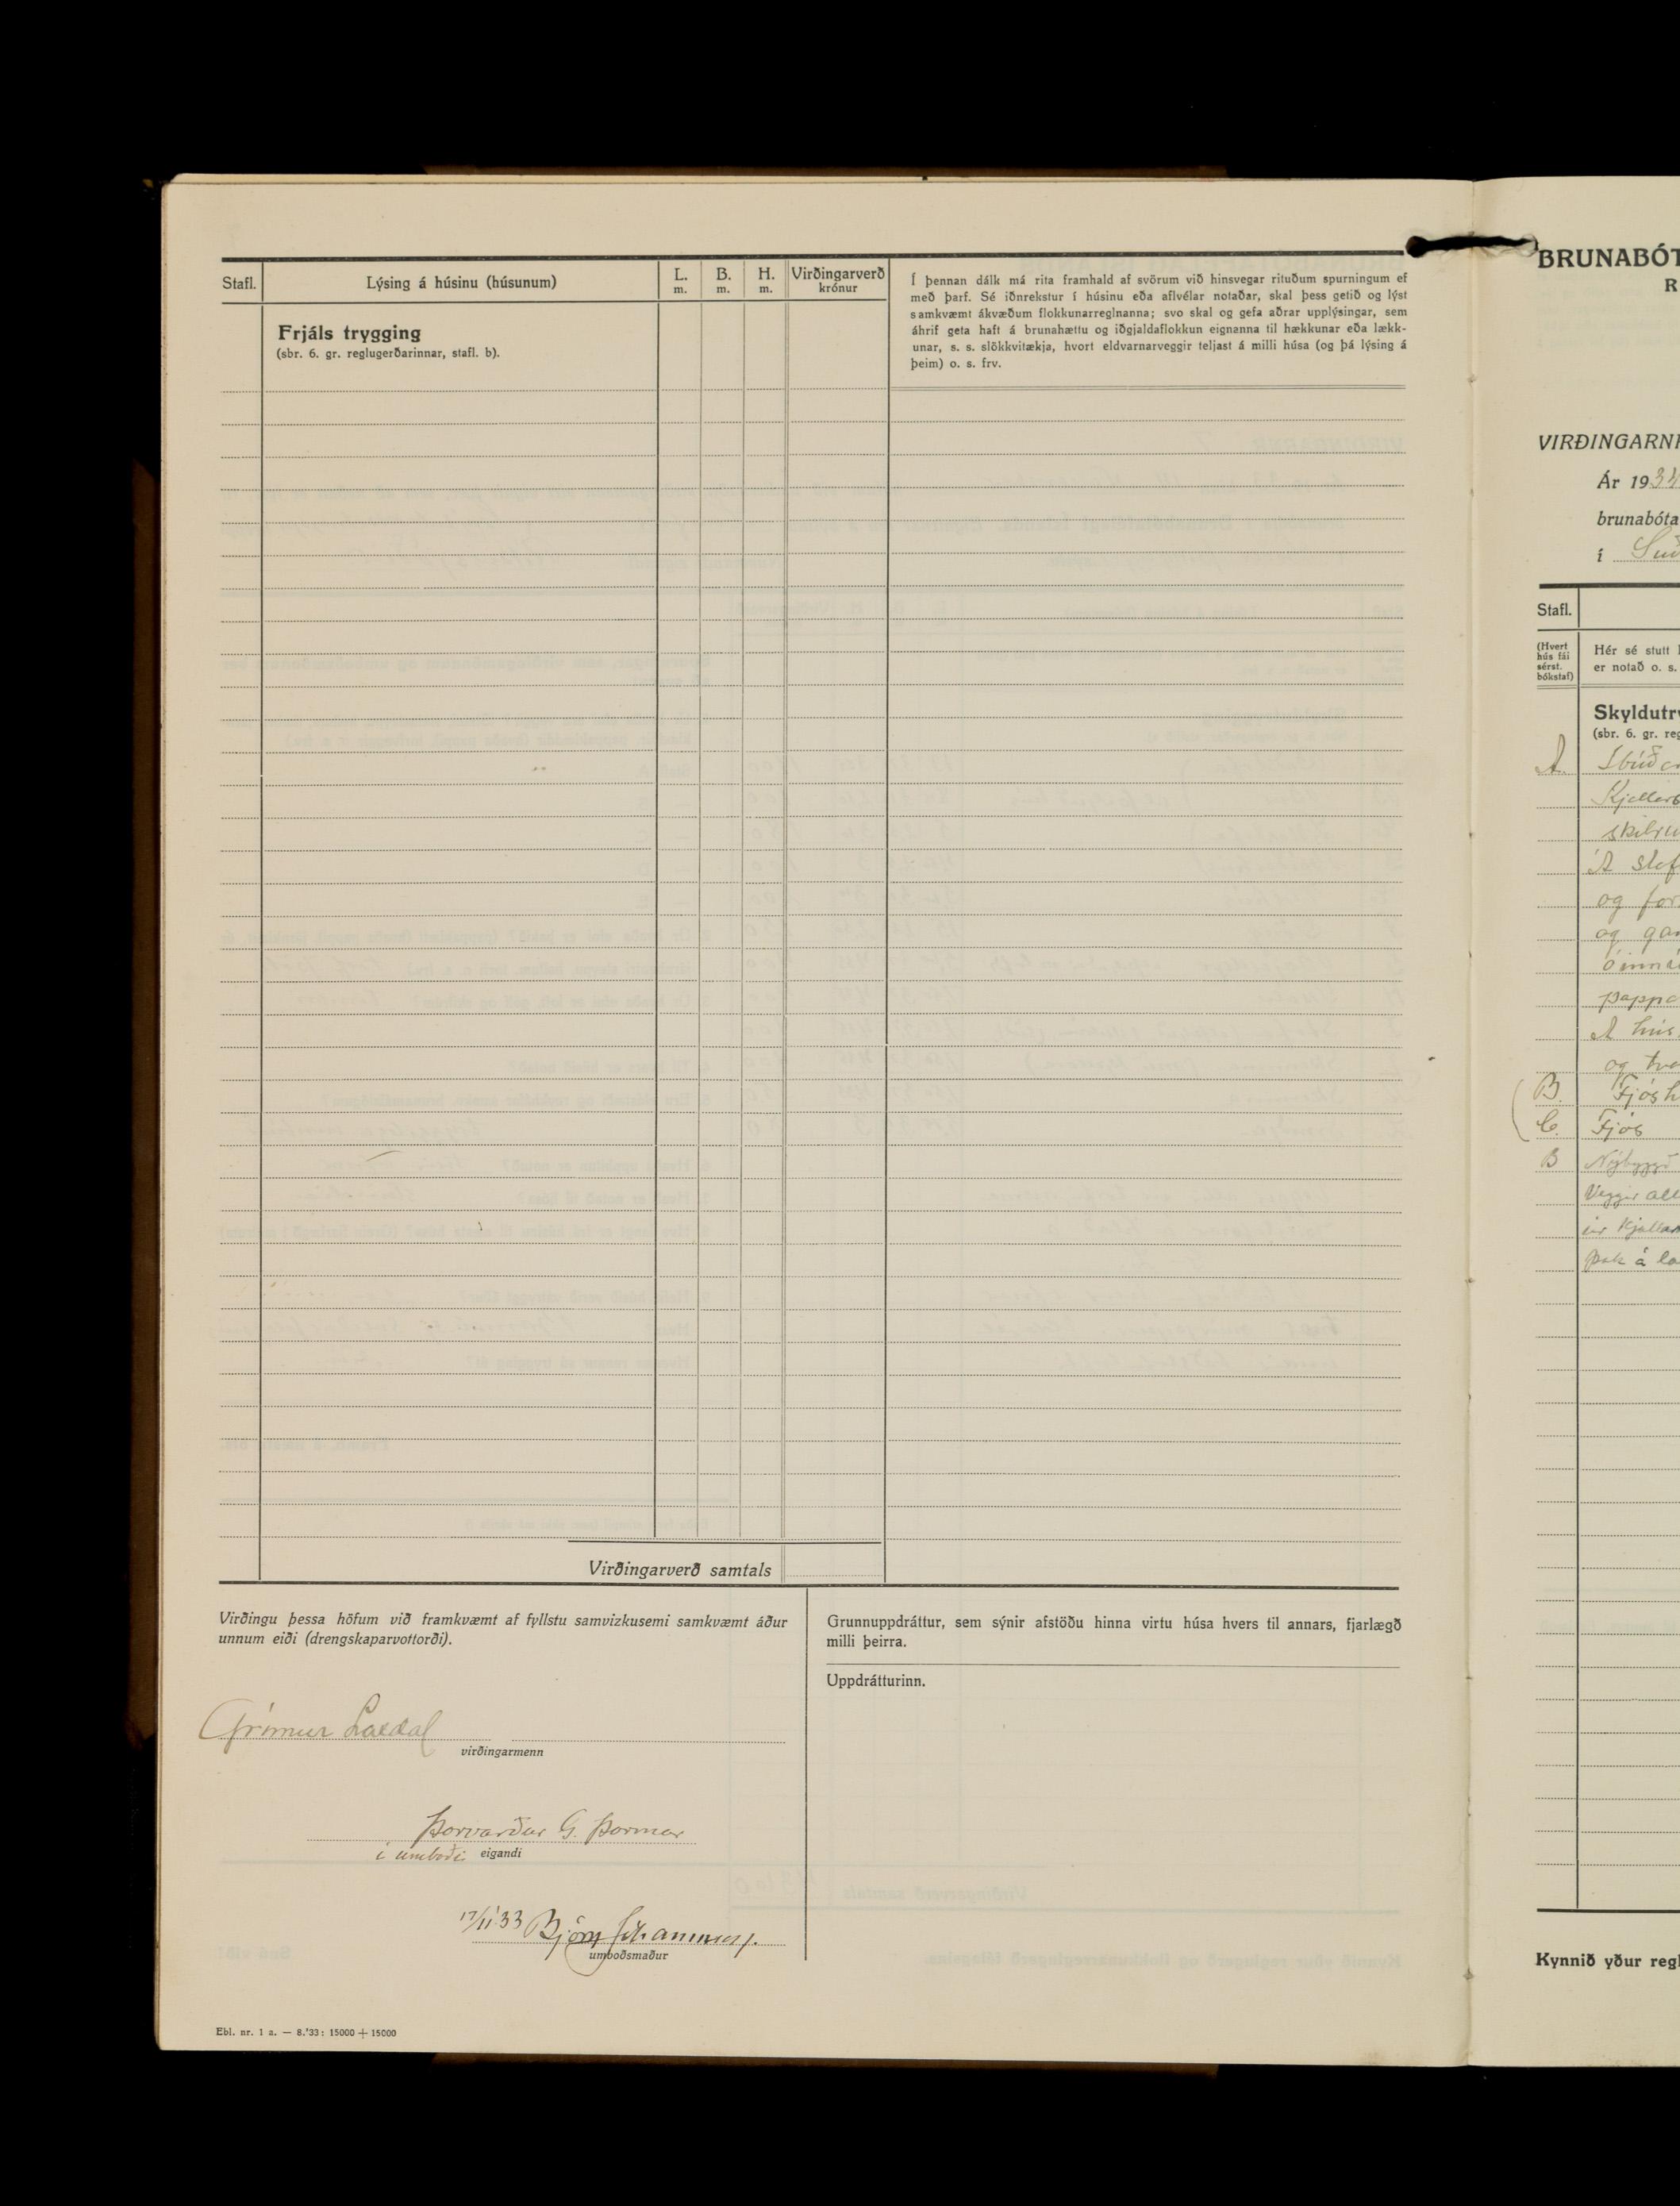 Stafl.
Lýsing á húsinu (húsunum)
L.
m.
B.
m.
H.
m.
Virðingarverð
krónur
Frjáls trygging
(sbr. 6. gr. reglugerðarinnar, stafl. b).
Í þennan dálk má rita framhald af svörum við hinsvegar rituðum spurningum ef
með þarf. Sé iðnrekstur í húsinu eða aflvélar notaðar, skal þess getið og lýst
samkvæmt ákvæðum flokkunarreglnanna; svo skal og gefa aðrar upplýsingar, sem
áhrif geta haft á brunahættu og iðgjaldaflokkun eignanna til hækkunar eða lækk-
unar, s. s. slökkvitækja, hvort eldvarnarveggir teljast á milli húsa (og þá lýsing á
þeim) o. s. frv.
Virðingarverð samtals
Virðingu þessa höfum við framkvæmt af fyllstu samvizkusemi samkvæmt áður
unnum eiði (drengskaparvottorði).
Grímur Laxdal
virðingarmenn
Þorvarður G. Þormar
í umboði eigandi
17/11 33 Björn
umboðsmaður
Grunnuppdráttur, sem sýnir afstöðu hinna virtu húsa hvers til annars, fjarlægð
milli þeirra.
Uppdrátturinn.
Ebl. nr. 1 a. — 8.'33: 15000 + 15000
BRUNABÓT
R
VIRÐINGARN
Ár 1934
brunabóta
í Suð
Stafl.
(Hvert
hús fái
sérst.
bókstaf)
Hér sé stutt
er notað o. s.
Skyldutr
(sbr. 6. gr. reg
A. Íbúðar
Kjallara
skilrú
Á stof
og for
og gan
óinná
pappa
Á hús
og tve
B. Fjósh
C. Fjós
B Nýbyggð
Veggir all
úr Kjallar
Þak á
Kynnið yður regl